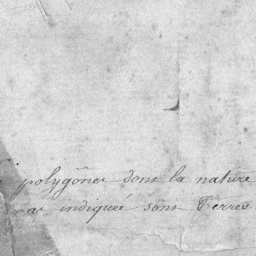 polygones dont la nature
pas indiquée sont Terres